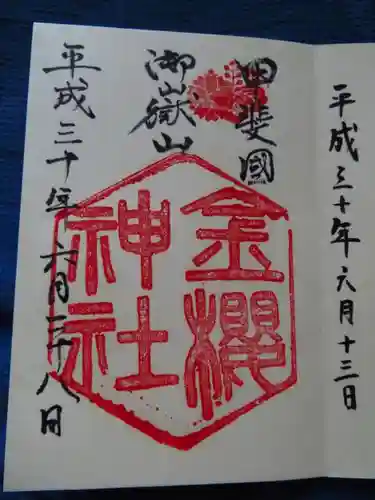 平成三十年六月十三日
甲斐國
御嶽山
金櫻
神社
平成三十年 六月二十八日